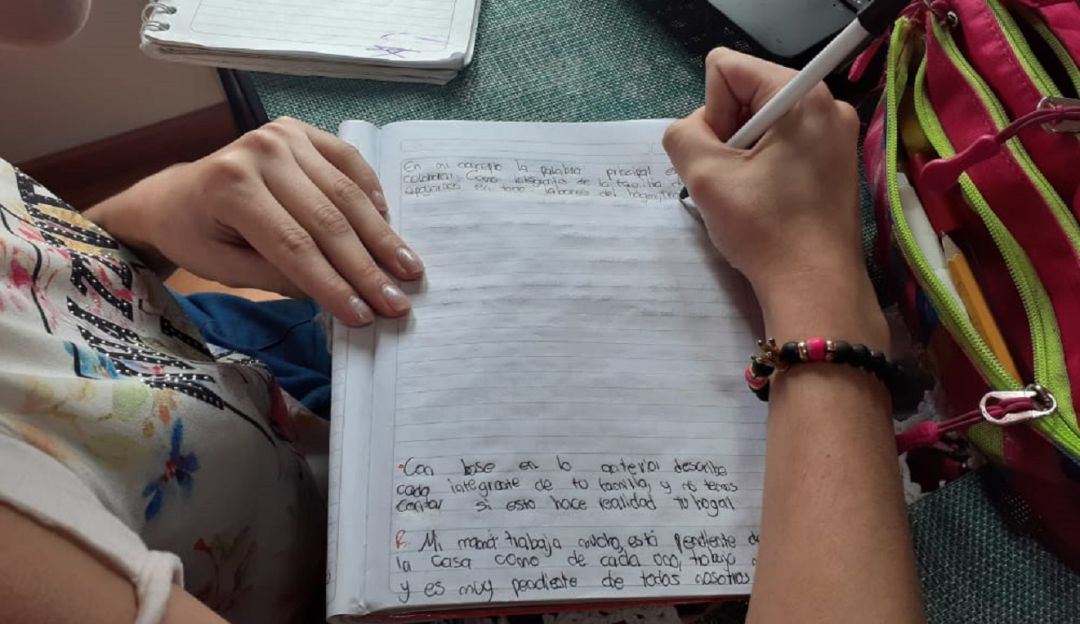 En mi concepto la palabra principal es
colaborar. Como integrantes de la familia
apoyarnos en todo labores del hogar,
•Con base en lo anterior describe
cada integrante de tu familia, y no temas
contar si esto hace realidad tu hogar
R Mi mamá trabaja mucho, está pendiente de
la casa como de cada uno, trabaja
y es muy pendiente de todos nosotros